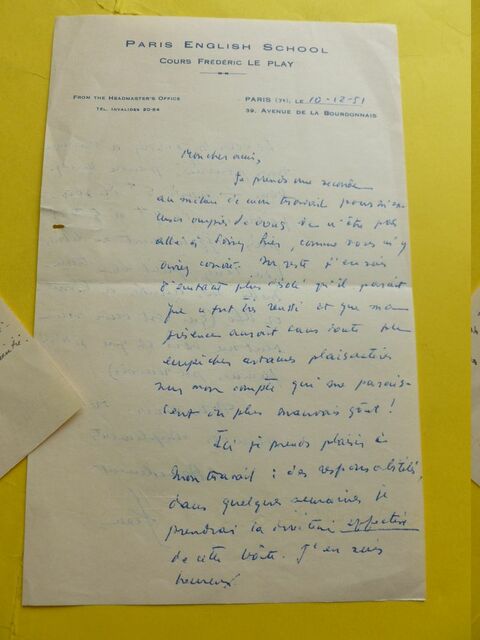 PARIS ENGLISH SCHOOL
COURS FRÉDÉRIC LE PLAY
FROM THE HEADMASTER'S OFFICE
TEL. INVALIDES 20-54
PARIS (7e), LE 10-12-51
39, AVENUE DE LA BOURDONNAIS
Mon cher ami,
Je prends une seconde
au milieu de mon travail pour m'ex-
cuser auprès de vous, de n'être pas
allé à hier, comme vous m'y
aviez convié. Du reste j'en suis
d'autant plus désolé qu'il paraît
que ce fut très réussi et que ma
présence aurait sans doute pu
empêcher certaines plaisanteries
sur mon compte qui me parais-
sent du plus mauvais goût !
Ici je prends plaisir à
mon travail : des responsabilités,
dans quelques semaines je
prendrai la direction effective
de cette boîte. J'en suis
heureux.